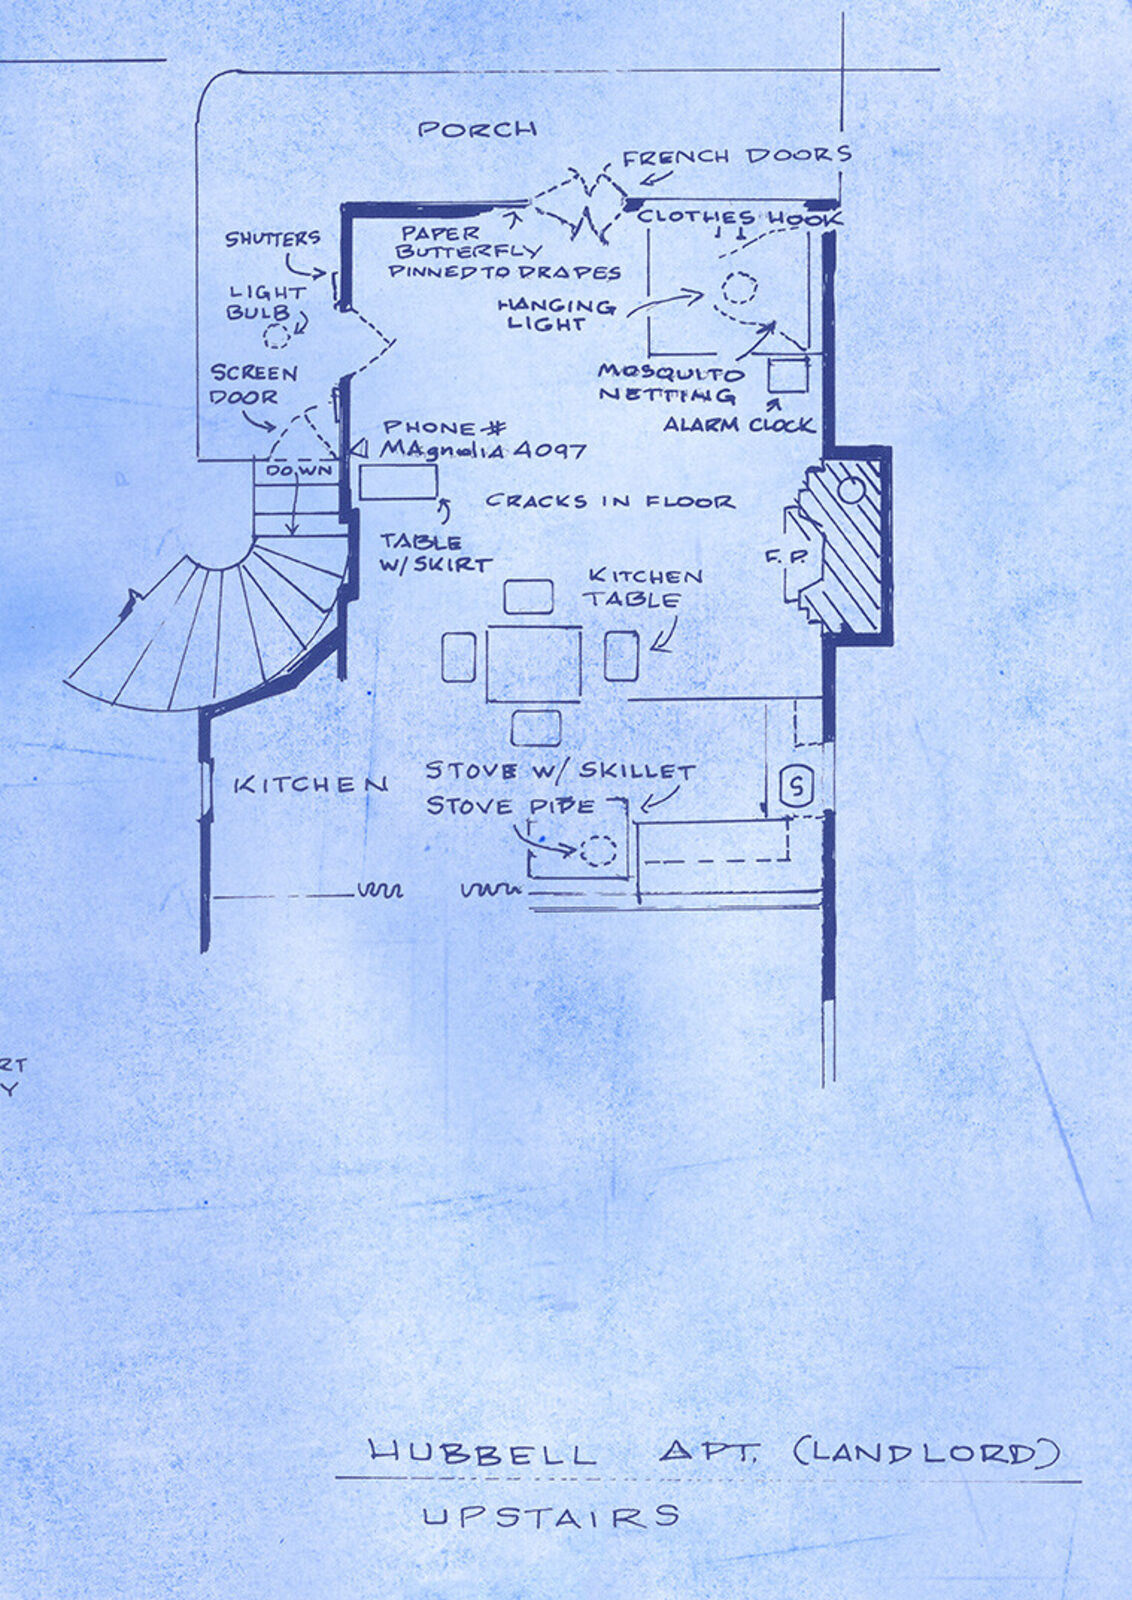 PORCH
FRENCH DOORS
CLOTHES HOOK
SHUTTERS
PAPER
BUTTERFLY
PINNED TO DRAPES
LIGHT
BULB
HANGING
LIGHT
SCREEN
DOOR
MOSQUITO
NETTING
ALARM CLOCK
PHONE #
MAgnoliA 4097
DOWN
CRACKS IN FLOOR
TABLE
W/SKIRT
F.P.
KITCHEN
TABLE
STOVE W/ SKILLET
KITCHEN
S
STOVE PIPE
RT
Y
HUBBELL APT. (LANDLORD)
UPSTAIRS